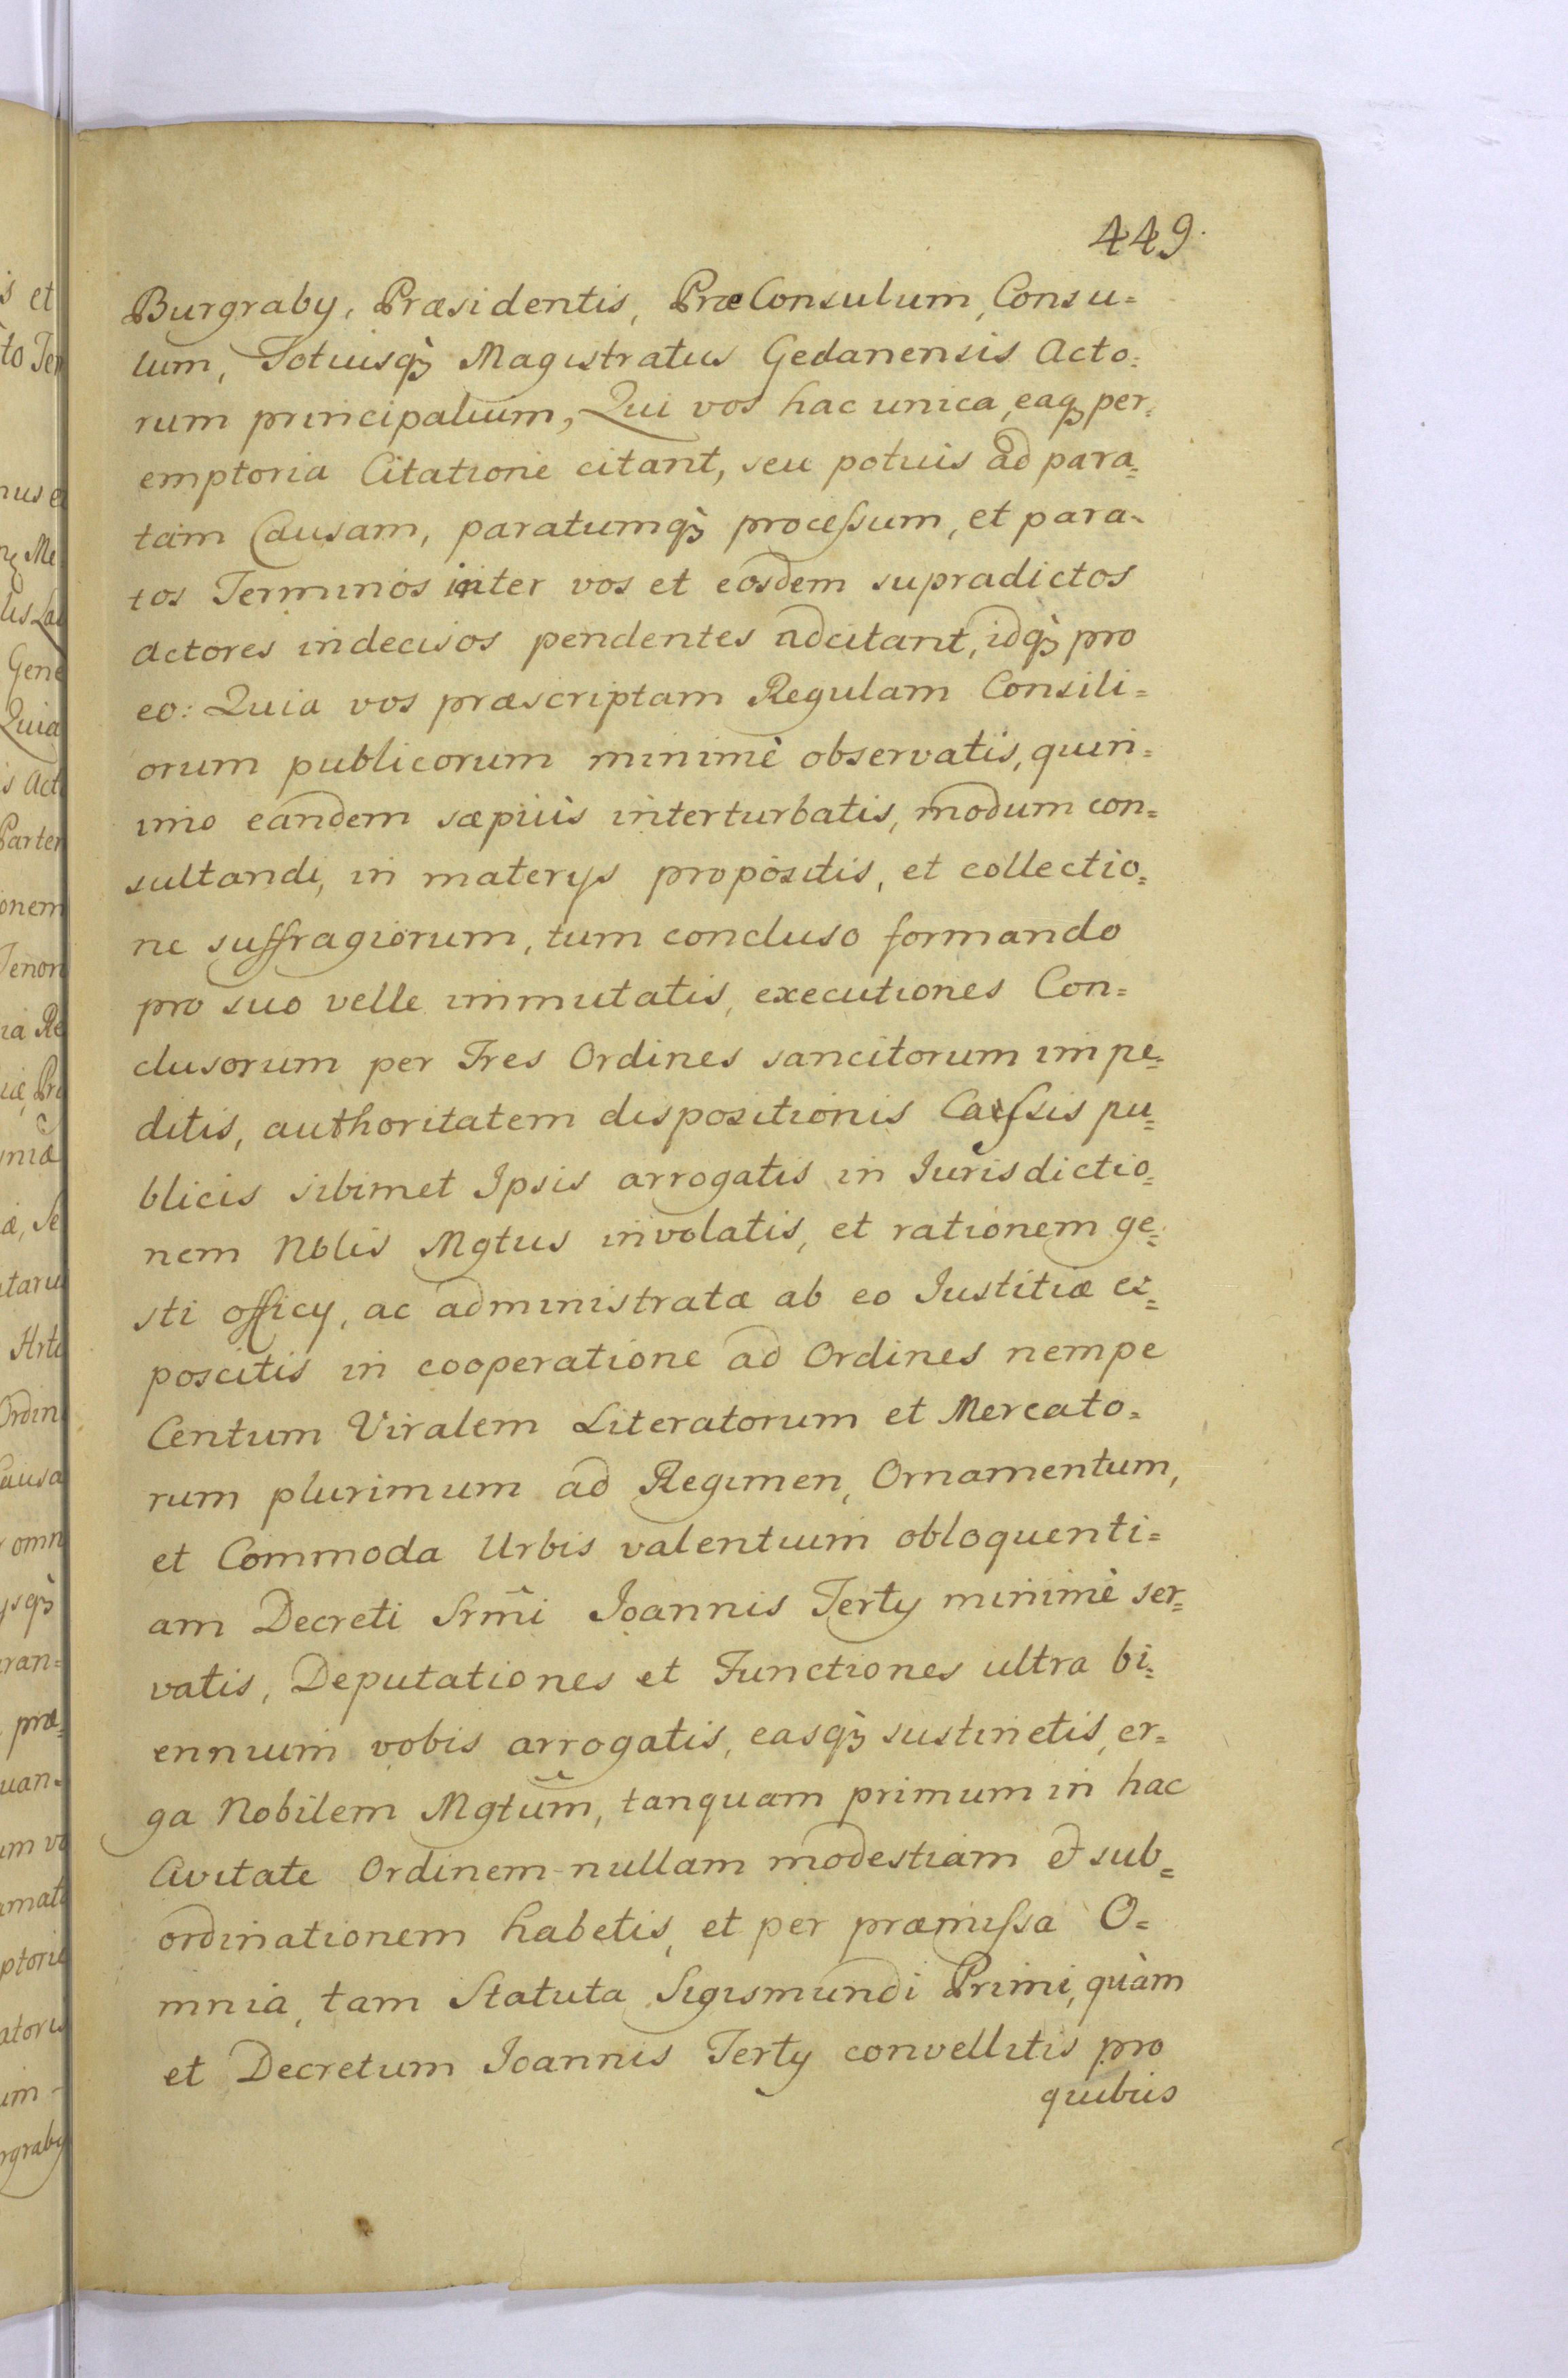 449.
Burgraby, Præsidentis, PræConsulum, Consu=
lum, Totiusq̀ꝫ Magistratus Gedanensis Acto=
rum principalium, Qui vos hac unica, eaqꝫ per=
emptoria Citatione citant, seu potius ad para=
tam Causam, paratumq̀ꝫ proceſsum, et para=
tos Terminos inter vos et eosdem supradictos
actores indecisos pendentes adcitant, idq̀ꝫ pro
eo: Quia vos præscriptam Regulam Consili=
orum publicorum minimè observatis, quin=
imo eandem sæpiùs interturbatis, modum con=
sultandi, in materys propositis, et collectio=
ne suffragiorum, tum concluso formando
pro suo velle immutatis, executiones Con=
clusorum per Tres Ordines sancitorum impe=
ditis, authoritatem dispositionis Caſsis pu=
blicis sibimet Ipsis arrogatis in Iurisdictio=
nem Nblis Mgtus involatis, et rationem ge=
sti officy, ac administratæ ab eo Iustitiæ ex=
poscitis in cooperatione ad Ordines nempe
Centum Viralem Literatorum et Mercato=
rum plurimum ad Regimen, Ornamentum,
et Commoda Urbis valentium obloquenti=
am Decreti Srm̃i Joannis Terty minimè ser=
vatis, Deputationes et Functiones ultra bi=
ennium vobis arrogatis, easq̀ꝫ sustinetis, er=
ga Nobilem Mgtum̃, tanquam primum in hac
Civitate Ordinem nullam modestiam et sub=
ordinationem habetis, et per præmiſsa O=
mnia, tam Statuta Sigismundi Primi, quàm
et Decretum Joannis Terty convellitis pro
quibus
s et
to Ter
Me
Gene
Quia
s Act
Parter
onem
Tenor
ia Re
æ, Se
taru
Arti
Ordin
Causa
omn
ysq̀ꝫ
ran=
præ=
uan=
um vo
amat
ptoria
atoris
um
rgraby